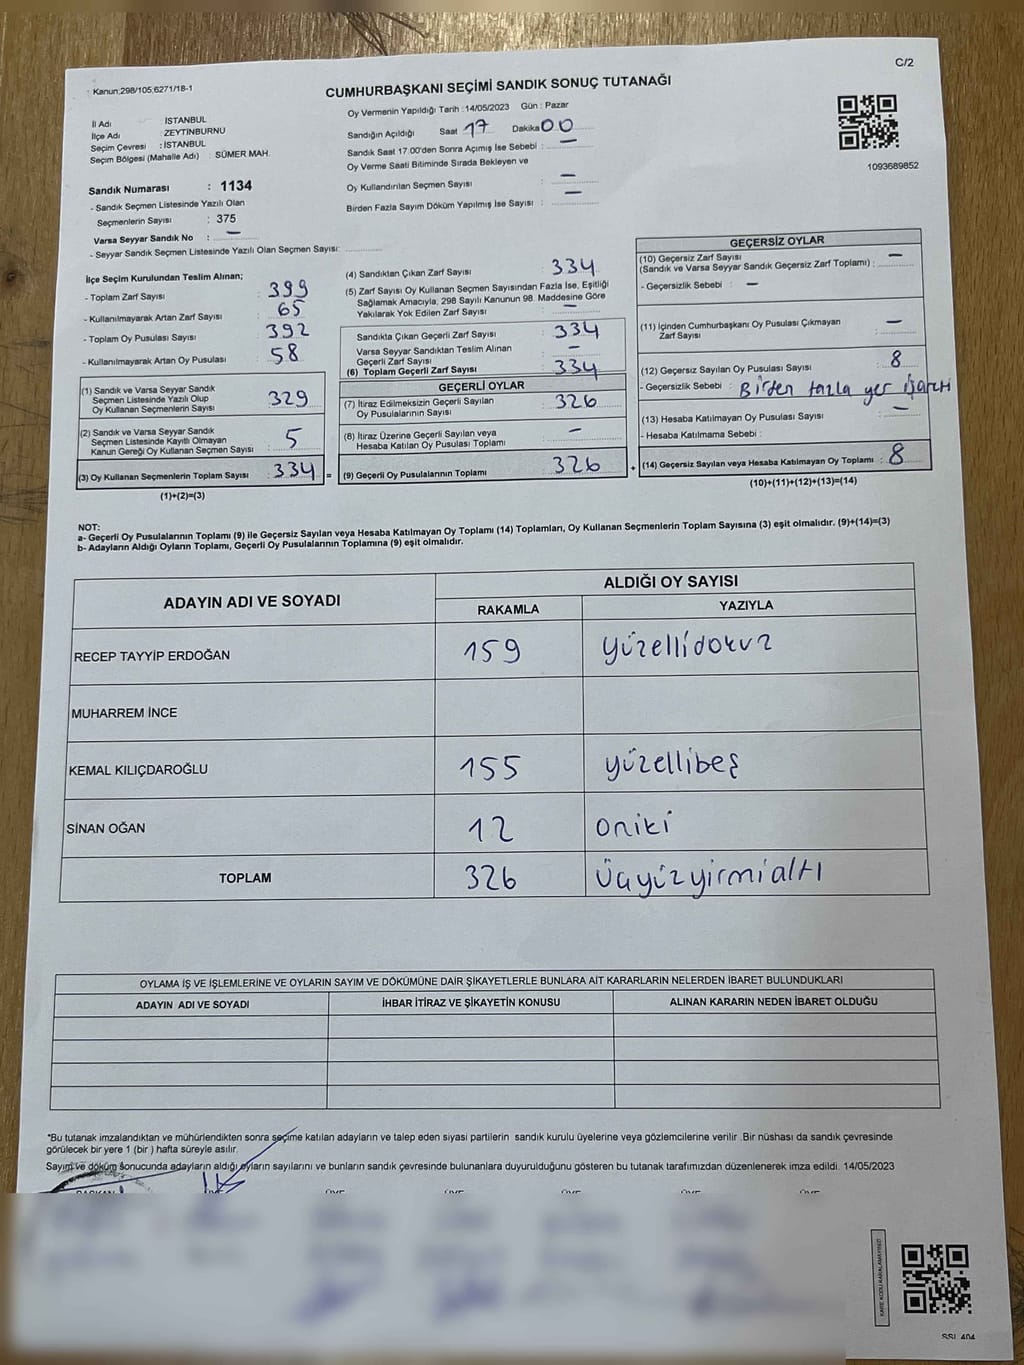 Kanun;298/105;6271/18-1
CUMHURBAŞKANI SEÇİMİ SANDIK SONUÇ TUTANAĞI
C/2
İl Adı : İSTANBUL
İlçe Adı : ZEYTİNBURNU
Seçim Çevresi : İSTANBUL
Seçim Bölgesi (Mahalle Adı) : SÜMER MAH.
Sandık Numarası : 1134
- Sandık Seçmen Listesinde Yazılı Olan
Seçmenlerin Sayısı : 375
Varsa Seyyar Sandık No : —
- Seyyar Sandık Seçmen Listesinde Yazılı Olan Seçmen Sayısı:
Oy Vermenin Yapıldığı Tarih : 14/05/2023 Gün : Pazar
Sandığın Açıldığı Saat 17 Dakika 00
Sandık Saat 17:00'den Sonra Açımış İse Sebebi : —
Oy Verme Saati Bitiminde Sırada Bekleyen ve
Oy Kullandırılan Seçmen Sayısı : —
Birden Fazla Sayım Döküm Yapılmış İse Sayısı : —
1093689852
İlçe Seçim Kurulundan Teslim Alınan;
- Toplam Zarf Sayısı : 399
- Kullanılmayarak Artan Zarf Sayısı : 65
- Toplam Oy Pusulası Sayısı : 392
- Kullanılmayarak Artan Oy Pusulası : 58
(1) Sandık ve Varsa Seyyar Sandık
Seçmen Listesinde Yazılı Olup
Oy Kullanan Seçmenlerin Sayısı : 329
(2) Sandık ve Varsa Seyyar Sandık
Seçmen Listesinde Kayıtlı Olmayan
Kanun Gereği Oy Kullanan Seçmen Sayısı : 5
(3) Oy Kullanan Seçmenlerin Toplam Sayısı : 334 =
(1)+(2)=(3)
(4) Sandıktan Çıkan Zarf Sayısı : 334
(5) Zarf Sayısı Oy Kullanan Seçmen Sayısından Fazla İse, Eşitliği
Sağlamak Amacıyla, 298 Sayılı Kanunun 98. Maddesine Göre
Yakılarak Yok Edilen Zarf Sayısı : —
Sandıkta Çıkan Geçerli Zarf Sayısı : 334
Varsa Seyyar Sandıktan Teslim Alınan
Geçerli Zarf Sayısı : —
(6) Toplam Geçerli Zarf Sayısı : 334
GEÇERLİ OYLAR
(7) İtiraz Edilmeksizin Geçerli Sayılan
Oy Pusulalarının Sayısı : 326
(8) İtiraz Üzerine Geçerli Sayılan veya
Hesaba Katılan Oy Pusulası Toplamı : —
(9) Geçerli Oy Pusulalarının Toplamı : 326 +
GEÇERSİZ OYLAR
(10) Geçersiz Zarf Sayısı
(Sandık ve Varsa Seyyar Sandık Geçersiz Zarf Toplamı) : —
- Geçersizlik Sebebi : —
(11) İçinden Cumhurbaşkanı Oy Pusulası Çıkmayan
Zarf Sayısı : —
(12) Geçersiz Sayılan Oy Pusulası Sayısı : 8
- Geçersizlik Sebebi : Birden fazla yer işareti
(13) Hesaba Katılmayan Oy Pusulası Sayısı : —
- Hesaba Katılmama Sebebi :
(14) Geçersiz Sayılan veya Hesaba Katılmayan Oy Toplamı : 8
(10)+(11)+(12)+(13)=(14)
NOT:
a- Geçerli Oy Pusulalarının Toplamı (9) ile Geçersiz Sayılan veya Hesaba Katılmayan Oy Toplamı (14) Toplamları, Oy Kullanan Seçmenlerin Toplam Sayısına (3) eşit olmalıdır. (9)+(14)=(3)
b- Adayların Aldığı Oyların Toplamı, Geçerli Oy Pusulalarının Toplamına (9) eşit olmalıdır.
ADAYIN ADI VE SOYADI ALDIĞI OY SAYISI
RAKAMLA YAZIYLA
RECEP TAYYİP ERDOĞAN 159 yüzellidokuz
MUHARREM İNCE
KEMAL KILIÇDAROĞLU 155 yüzellibeş
SİNAN OĞAN 12 oniki
TOPLAM 326 üçyüzyirmialtı
OYLAMA İŞ VE İŞLEMLERİNE VE OYLARIN SAYIM VE DÖKÜMÜNE DAİR ŞİKAYETLERLE BUNLARA AİT KARARLARIN NELERDEN İBARET BULUNDUKLARI
ADAYIN ADI VE SOYADI İHBAR İTİRAZ VE ŞİKAYETİN KONUSU ALINAN KARARIN NEDEN İBARET OLDUĞU
*Bu tutanak imzalandıktan ve mühürlendikten sonra seçime katılan adayların ve talep eden siyasi partilerin sandık kurulu üyelerine veya gözlemcilerine verilir .Bir nüshası da sandık çevresinde
görülecek bir yere 1 (bir ) hafta süreyle asılır.
Sayım ve döküm sonucunda adayların aldığı oyların sayılarını ve bunların sandık çevresinde bulunanlara duyurulduğunu gösteren bu tutanak tarafımızdan düzenlenerek imza edildi. 14/05/2023